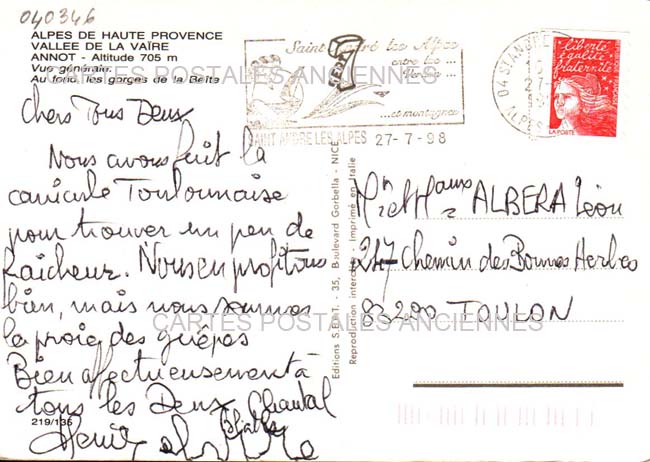 040346
ALPES DE HAUTE PROVENCE
VALLEE DE LA VAÏRE
ANNOT - Altitude 705 m
Vue générale.
Au fond, les gorges de la Beïte
CARTES POSTALES ANCIENNES
Chers Tous Deux
Nous avons fuit la
canicule Toulonnaise
pour trouver un peu de
fraicheur. Nous en profitons
bien, mais nous sommes
la proie des guêpes
Bien affectueusement à
tous les Deux Chantal
219/135
Saint André les Alpes
entre lac ...
... et montagnes
SAINT ANDRE LES ALPES 27-7-98
04 ST ANDRE
ALPES
liberté
égalité
fraternité
LA POSTE
Editions S.E.P.T. - 35, Boulevard Gorbella - NICE
Reproduction interdite - Imprimé en Italie
ALBERA Léon
217 Chemin des Bonnes Herbes
83200 TOULON
CARTES POSTALES ANCIENNES